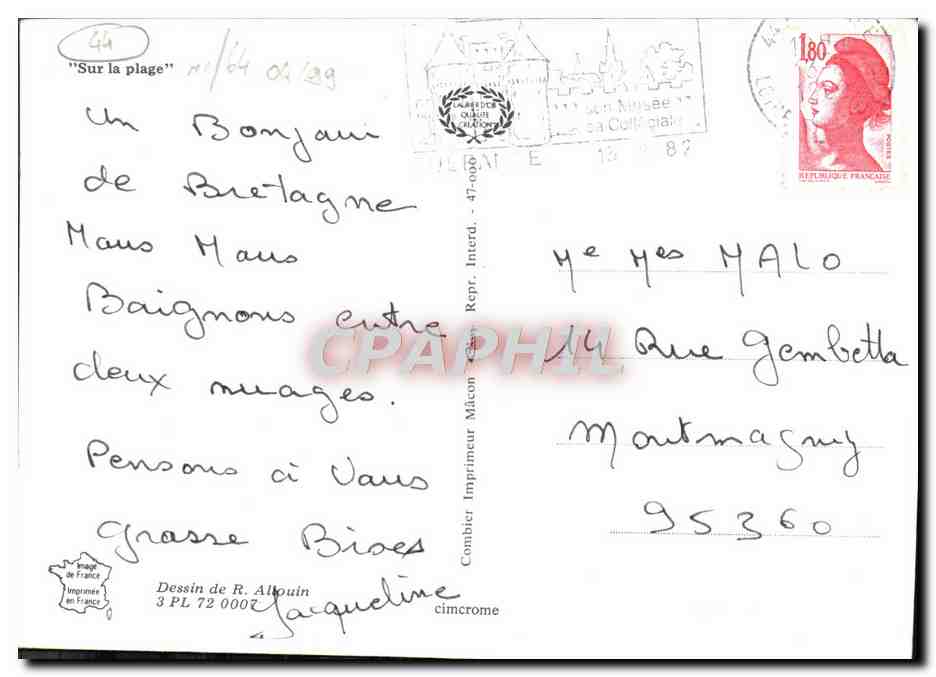 44
"Sur la plage"
LAURIER D'OR
QUALITE
CREATION
son Musée
sa Collégiale
1,80
POSTES
REPUBLIQUE FRANÇAISE
Un Bonjour
de Bretagne
Nous Nous
Baignons entre
deux nuages.
Pensons à Vous
grosse Bises
Jacqueline
Me Mes MALO
14 Rue Gembetta
Montmagny
95360
CPAPHIL
Combier Imprimeur Mâcon Repr. Interd. - 47-000
Image
de France
Imprimée
en France
Dessin de R. Allouin
3 PL 72 0007
cimcrome